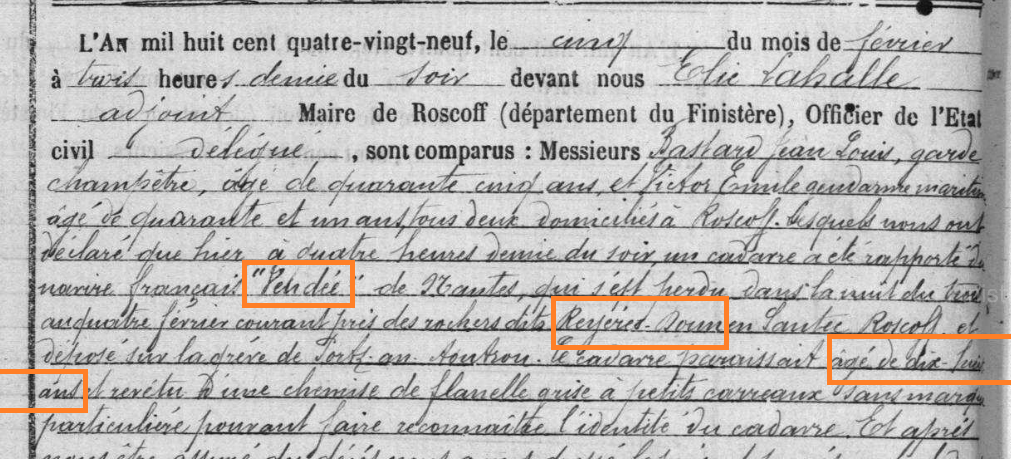 L'AN mil huit cent quatre-vingt-neuf, le cinq du mois de février
à trois heures demie du soir devant nous Elie Lahalle
adjoint Maire de Roscoff (département du Finistère), Officier de l'Etat
civil délégué, sont comparus : Messieurs Bastard Jean Louis, garde
champêtre, âgé de quarante cinq ans, et Victor Emile gendarme maritime
âgé de quarante et un ans, tous deux domiciliés à Roscoff. lesquels nous ont
déclaré que hier, à quatre heures demie du soir, un cadavre a été rapporté du
navire français "Vendée" de Nantes, qui s'est perdu dans la nuit du trois
au quatre février courant près des rochers dits en Santec Roscoff, et
déposé sur la grève de Portz-an. Le cadavre paraissait âgé de dix-huit
ans et revêtu d'une chemise de flanelle grise à petits carreaux sans marque
particulière pouvant faire reconnaître l'identité du cadavre. Et après
nous être assuré du décès nous avons dressé